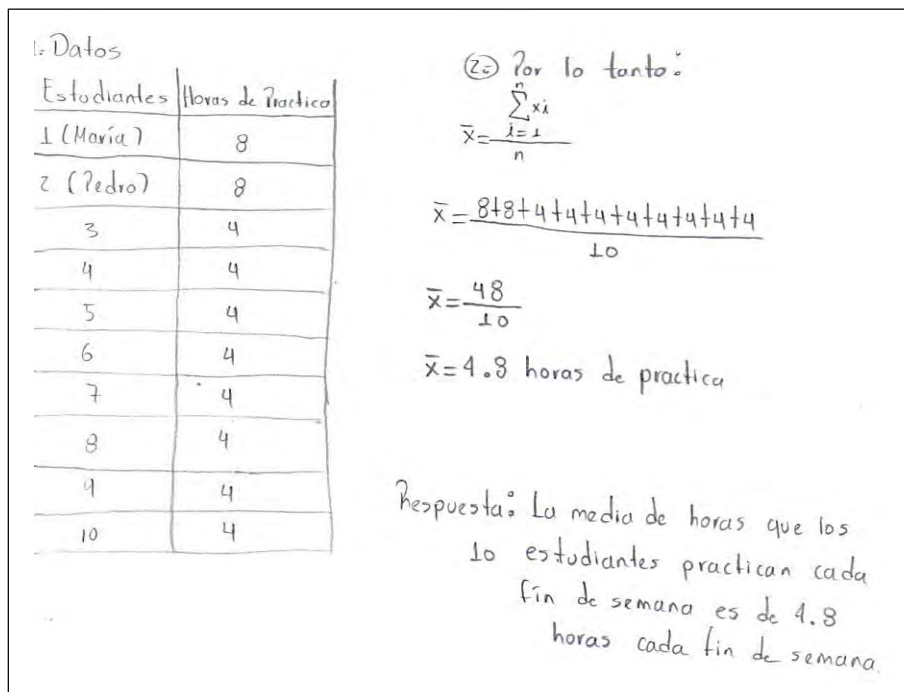 1. Datos
Estudiantes Horas de Practica
1 (María) 8
2 (Pedro) 8
3 4
4 4
5 4
6 4
7 4
8 4
9 4
10 4
2. Por lo tanto:
x̄ = ∑ⁿᵢ₌₁ xi / n
x̄ = 8+8+4+4+4+4+4+4+4+4 / 10
x̄ = 48 / 10
x̄ = 4.8 horas de practica
Respuesta: La media de horas que los
10 estudiantes practican cada
fin de semana es de 4.8
horas cada fin de semana.